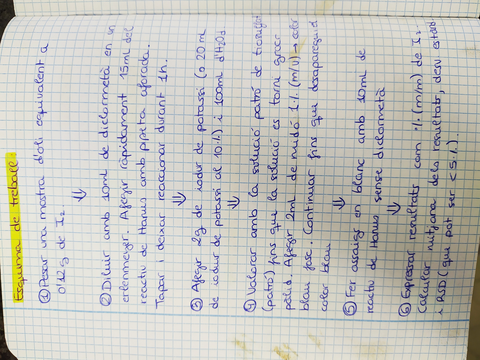 Esquema de treball:
① Pesar una mostra d'oli equivalent a
0'12 g de I2.
⇓
② Diluir amb 10ml de diclormetà en un
erlenmeyer. Afegir ràpidament 15ml del
reactiu de Hanus amb pipeta aforada.
Tapar i deixar reaccionar durant 1h.
⇓
③ Afegir 2g de iodur de potassi (o 20 ml
de iodur de potassi al 10%) i 100ml d'H2Od
⇓
④ Valorar amb la solució patró de tiosulfat
(patró) fins que la solució es torni groc
pàlid. Afegir 2ml de midó 1% (m/v) → color
blau fosc. Continuar fins que desaparegui el
color blau.
⇓
⑤ Fer assaig en blanc amb 10ml de
reactiu de Hanus sense diclormetà
⇓
⑥ Expressar resultats com % (m/m) de I2.
Calcular mitjana dels resultats, desv. estàn.
RSD (que pot ser < 5%).